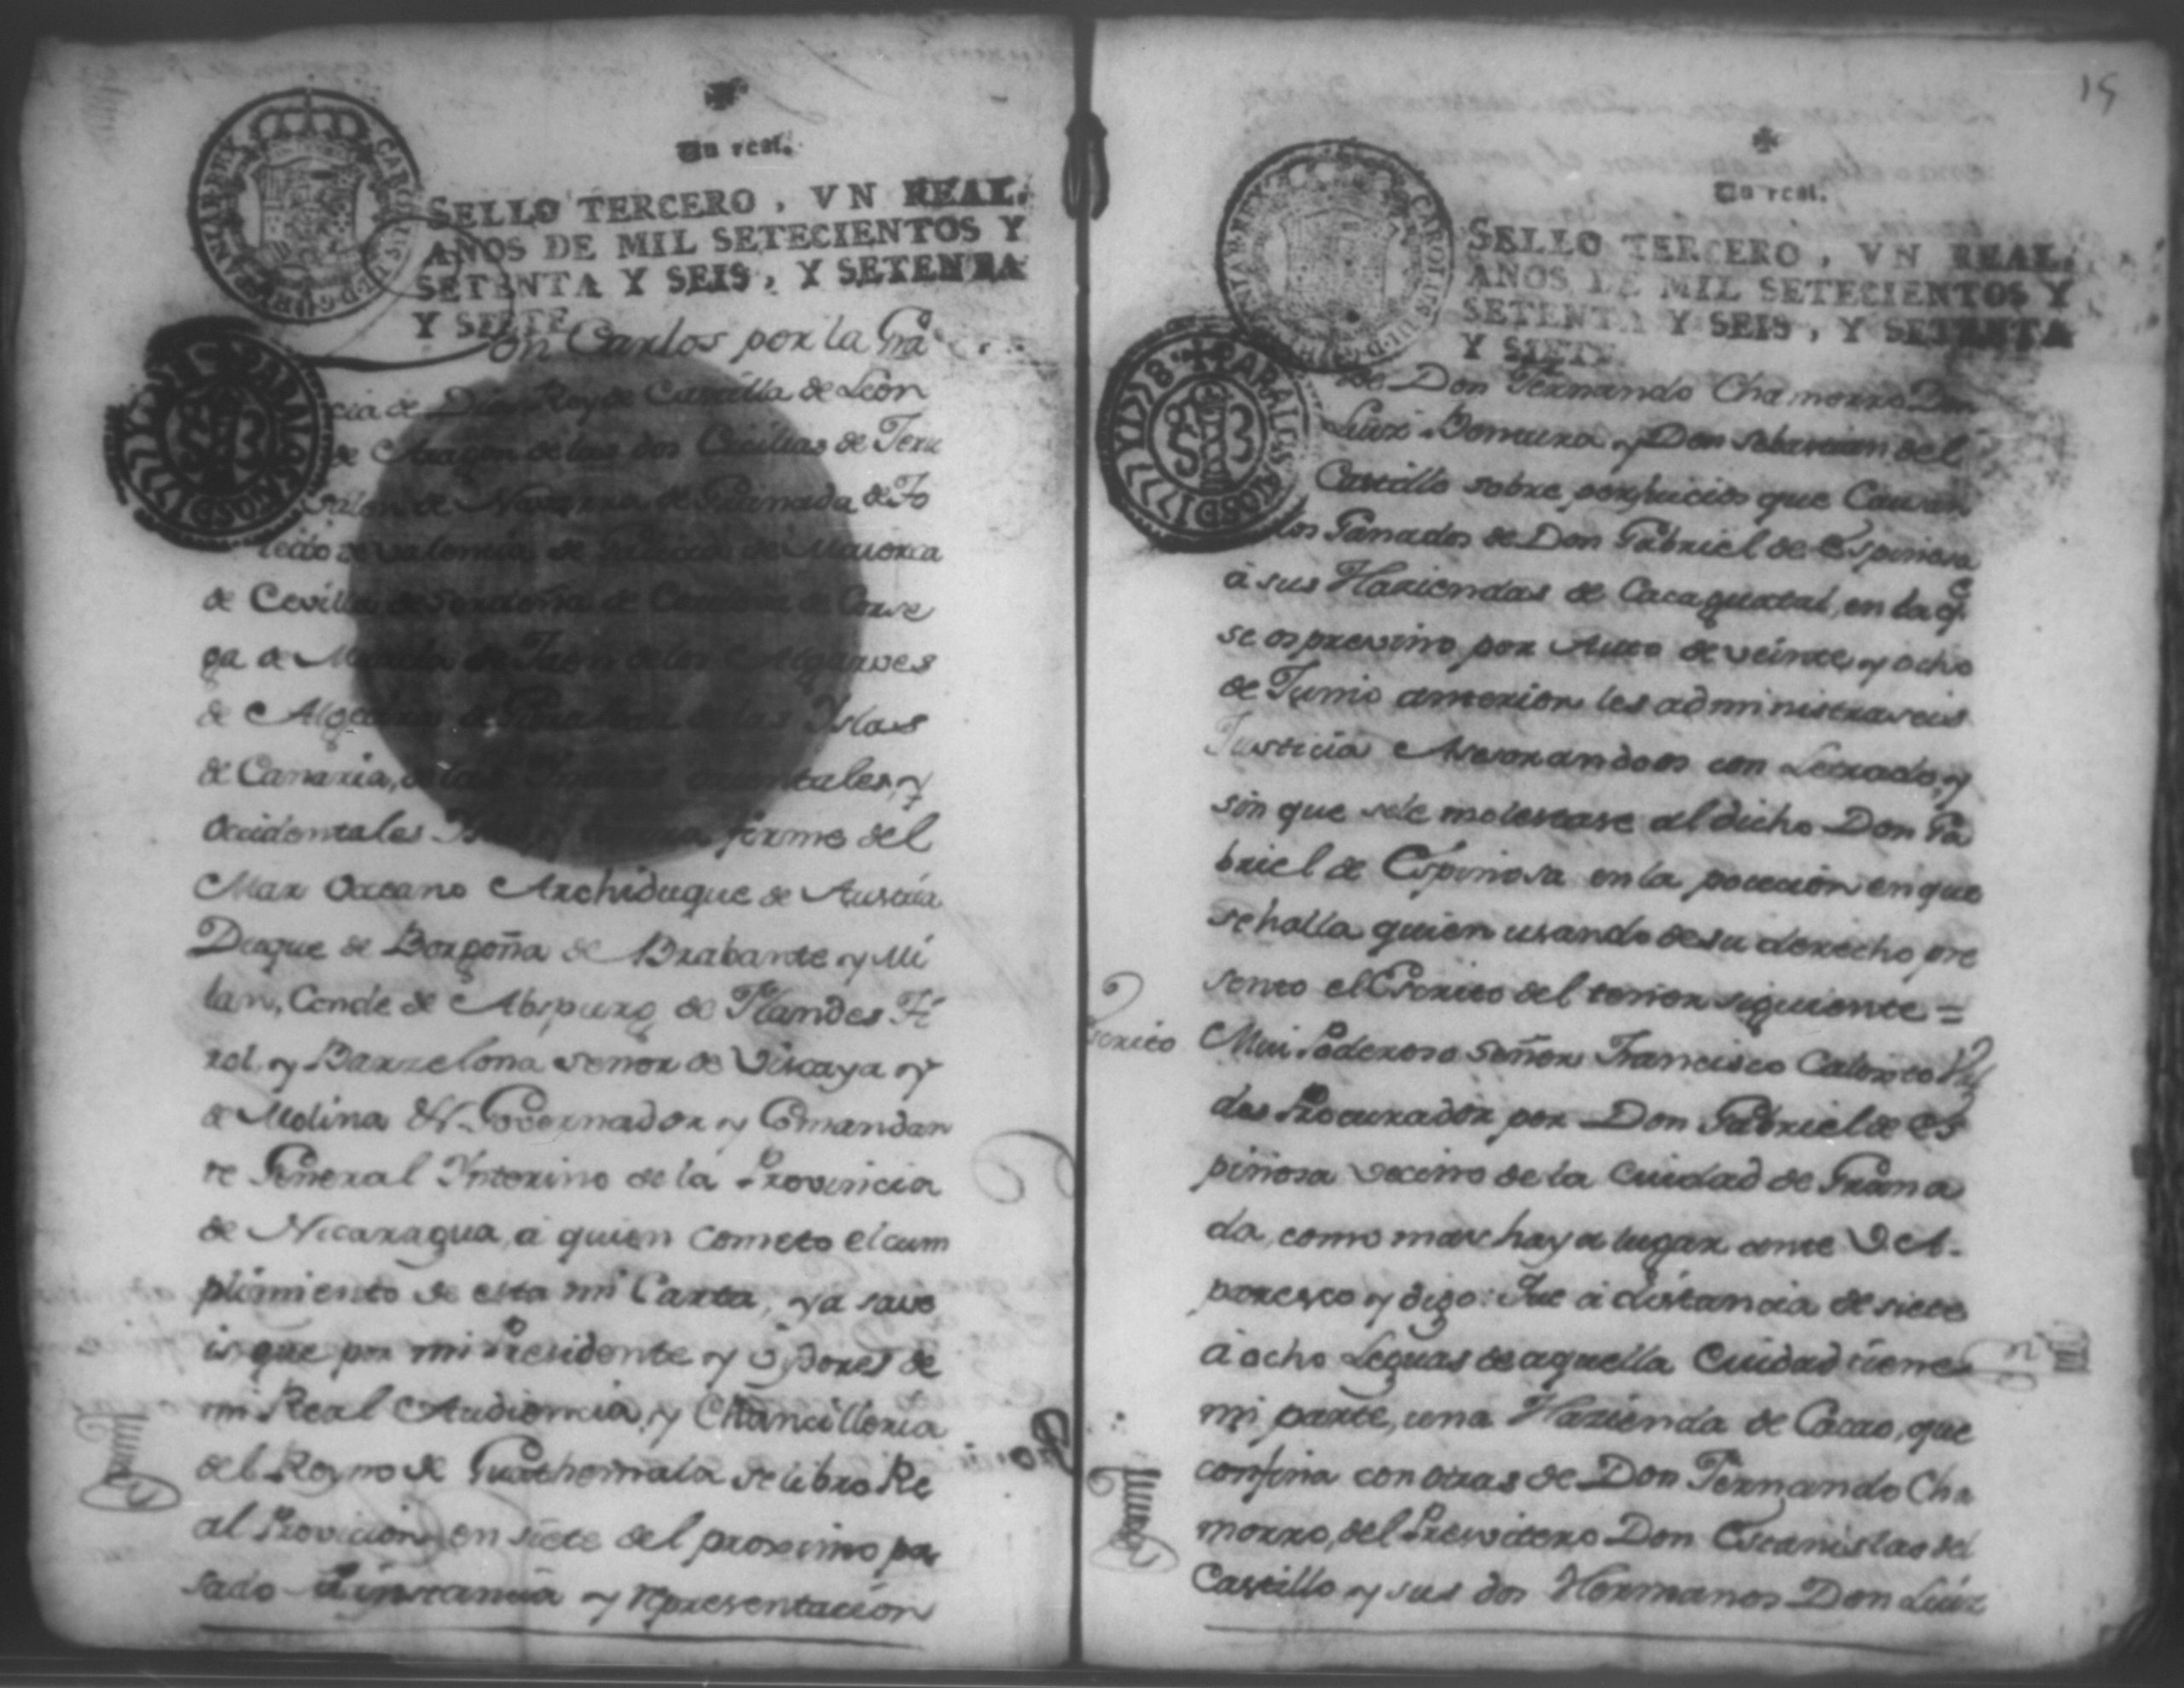 Un real.
SELLO TERCERO, VN REAL.
AÑOS DE MIL SETECIENTOS Y
SETENTA Y SEIS, Y SETENTA
Y SIETE
CAROLUS
PARA LOS AÑOS D 1777 Y 1778
on Carlos por la Gra
cia de Dios Rey de Castilla de Leon
de Aragon de las dos Cicilias de Jeru
salen de Navarra de Granada de To
ledo de valencia de Galicia de Maiorca
de Cevilla de Serdeña de Cordova de Corse
ga de Murcia de Jaen de los Algarves
de Algeciras de Gibraltar de las Yslas
de Canaria, de las Yndias orientales, y
Occidentales Yslas y tierra firme del
Mar Occeano Archiduque de Austria
Duque de Borgoña de Brabante y Mi
lan, Conde de Abspurg de Flandes Ti
rol y Barzelona señor de Viscaya y
de Molina &ª Governador y Comandan
te General Ynterino de la Provincia
de Nicaragua, á quien cometo el cum
plimiento de esta mi Carta, ya save
is que por mi Presidente y Oydores de
mi Real Audiencia, y Chancilleria
del Reyno de Guathemala se libro Re
al Provicion en siete del proximo pa
sado á instancia y representacion
15
Un real.
SELLO TERCERO, VN REAL.
AÑOS DE MIL SETECIENTOS Y
SETENTA Y SEIS, Y SETENTA
Y SIETE
CAROLUS
PARA LOS AÑOS D 1777 Y 1778
de Don Fernando Chamorro Don
Luiz Bomura y Don Sebastian del
Castillo sobre perjuicios que Causan
los Ganados de Don Gabriel de Espinosa
á sus Haziendas de Cacaguatal, en la q.e
se os previno por Auto de veinte, y ocho
de Junio anterior les administraseis
Justicia Asesorandoos con Letrado, y
sin que se le molestase al dicho Don Ga
briel de Espinosa en la pocecion en que
se halla quien usando de su derecho pre
sento el Escrito del tenor siguiente =
Escrito Mui Poderoso Señor Francisco Calonto
des Procurador por Don Gabriel de Es
pinosa vecino de la Ciudad de Grana
da, como mas haya lugar ante V.A.
paresco y digo: Que á distancia de siete
á ocho Leguas de aquella Ciudad tiene
mi parte, una Hazienda de Cacao, que
confina con otras de Don Fernando Cha
morro, del Presvitero Don Estanislao del
Castillo y sus dos Hermanos Don Luiz